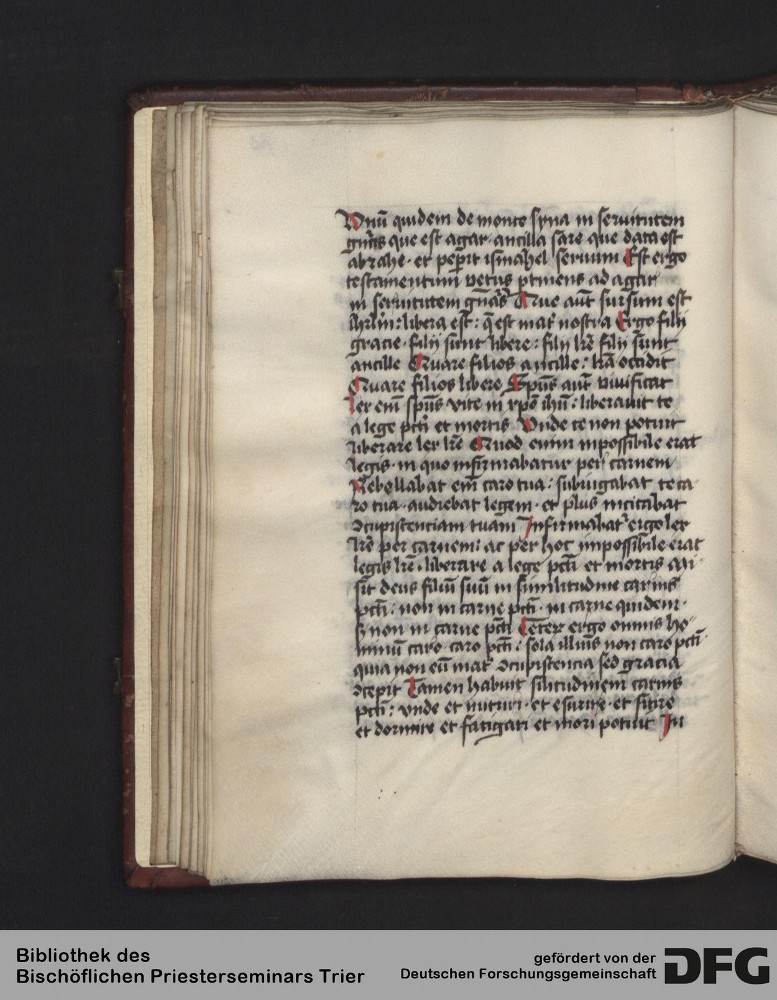 Vnū quidem de monte syna in seruitutem
gn̄ās que est agar · ancilla sare que data est
abrahe · et peperit ismahel seruum Est ergo
testamentum vetus ptinens ad agar
in seruitutem gn̄ās Que aūt sursum est
ihrlm̄ : libera est : q̄ est mat᷑ nostra Ergo filii
gracie · filii sunt libere : filii lr̄e filii sunt
ancille Quare filios ancille : lr̄a occidit
Quare filios libere Sp̄us aūt viuificat
lex em̄ sp̄us vite in xp̄o ihū : liberauit te
a lege pcti et mortis Vnde te non potuit
liberare lex lr̄e Quod enim inpossibile erat
legis · in quo infirmabatur per carnem
Rebellabat em̄ caro tua : subiugabat te ca
ro tua · audiebat legem · et plus incitabat
ɔcupistentiam tuam Infirmabat᷑ ergo lex
lr̄e per carnem : ac per hoc impossibile erat
legis lr̄e · liberare a lege pcti et mortis Mi ·
sit deus filiū suū in similitudine carnis
pcti : non in carne pcti · in carne quidem ·
s non in carne pcti Ceter ergo omnis ho
minū caro · caro pcti : sola illius non caro pcti
quia non eū mat᷑ ɔcupistencia sed gracia
ɔcepit Tamen habuit silitudinem carnis
pcti : vnde et nutriri · et esurire · et sitire
et dormire et fatigari et mori potuit In
Bibliothek des
Bischöflichen Priesterseminars Trier
gefördert von der
Deutschen Forschungsgemeinschaft
DFG